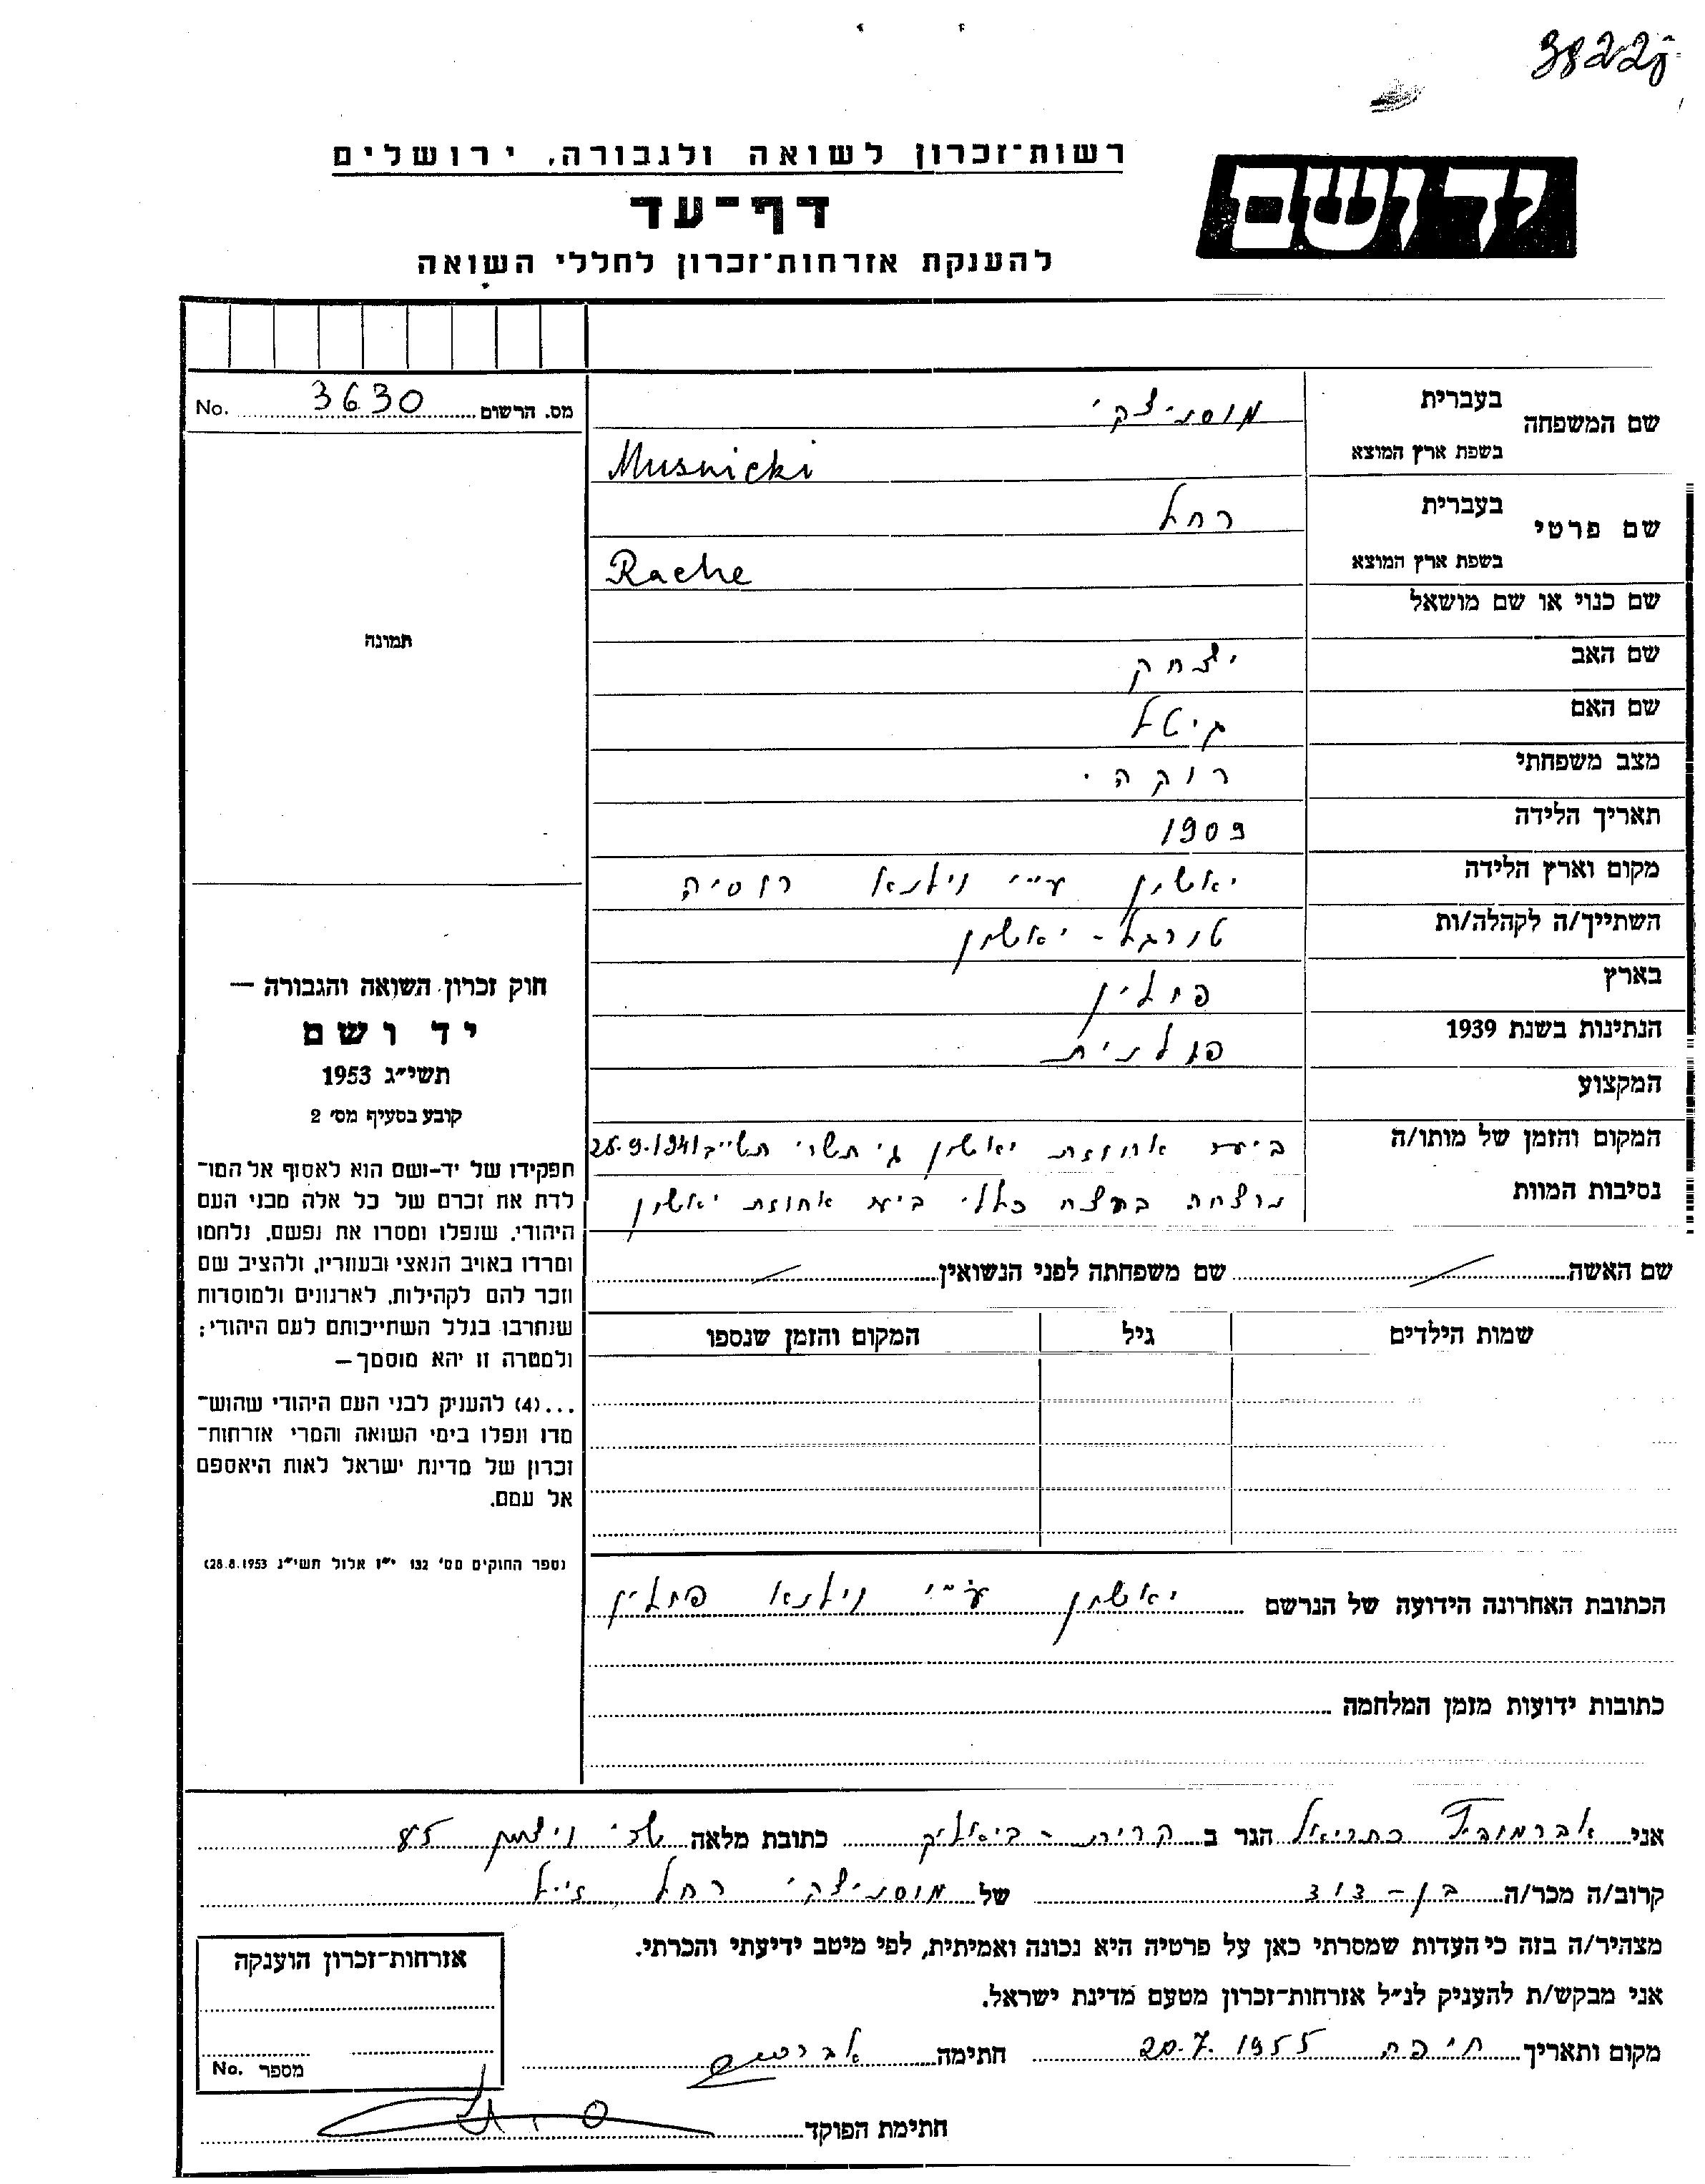 38228
רשות־זכרון לשואה ולגבורה, ירושלים
יד ושם
דף־עד
להענקת אזרחות־זכרון לחללי השואה
מס. הרשום 3630 No.
תמונה
חוק זכרון השואה והגבורה —
יד ושם
תשי״ג 1953
קובע בסעיף מס׳ 2
תפקידו של יד-ושם הוא לאסוף אל המו־
לדת את זכרם של כל אלה מבני העם
היהודי, שנפלו ומסרו את נפשם, נלחמו
ומרדו באויב הנאצי ובעוזריו, ולהציב שם
וזכר להם לקהילות, לארגונים ולמוסדות
שנחרבו בגלל השתייכותם לעם היהודי;
ולמטרה זו יהא מוסמך—
...(4) להעניק לבני העם היהודי שהוש־
מדו ונפלו בימי השואה והמרי אזרחות־
זכרון של מדינת ישראל לאות היאספם
אל עמם.
(ספר החוקים מס׳ 132 י״ז אלול תשי״ג 28.8.1953)
שם המשפחה
בעברית מוסניצקי
בשפת ארץ המוצא Musnicki
שם פרטי
בעברית רחל
בשפת ארץ המוצא Rache
שם כנוי או שם מושאל
שם האב יצחק
שם האם גיטל
מצב משפחתי רוקה.
תאריך הלידה 1909
מקום וארץ הלידה יאשון ע״י וילנא רוסיה
השתייך/ה לקהלה/ות טורגל - יאשון
בארץ פולין
הנתינות בשנת 1939 פולנית
המקצוע
המקום והזמן של מותו/ה ביער אחוזת יאשון ג׳ תשרי תש״ב 25.9.1941
נסיבות המוות נרצחה ברצח כללי ביער אחוזת יאשון
שם האשה שם משפחתה לפני הנשואין
שמות הילדים גיל המקום והזמן שנספו
הכתובת האחרונה הידועה של הנרשם יאשון ע״י וילנא פולין
כתובות ידועות מזמן המלחמה
אני אברמוביץ כתריאל הגר ב קרית - ביאליק כתובת מלאה שד׳ ויצמן
קרוב/ה מכר/ה בן - דוד של מוסניצקי רחל ז״ל
מצהיר/ה בזה כי העדות שמסרתי כאן על פרטיה היא נכונה ואמיתית, לפי מיטב ידיעתי והכרתי.
אני מבקש/ת להעניק לנ״ל אזרחות־זכרון מטעם מדינת ישראל.
מקום ותאריך חיפה 20.7.1955 חתימה
חתימת הפוקד
אזרחות־זכרון הוענקה
מספר No.